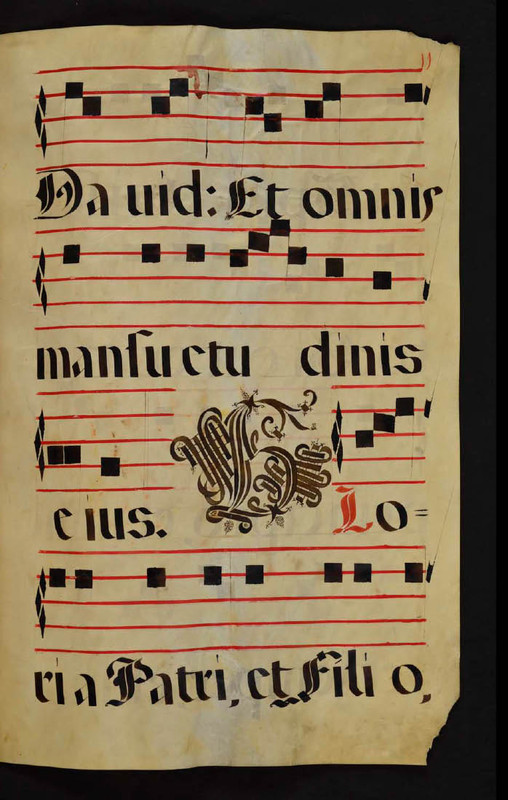 Da uid: Et omnis
mansu ctu dinis
e ius. G Lo=
ri a Patri, et Fili o,